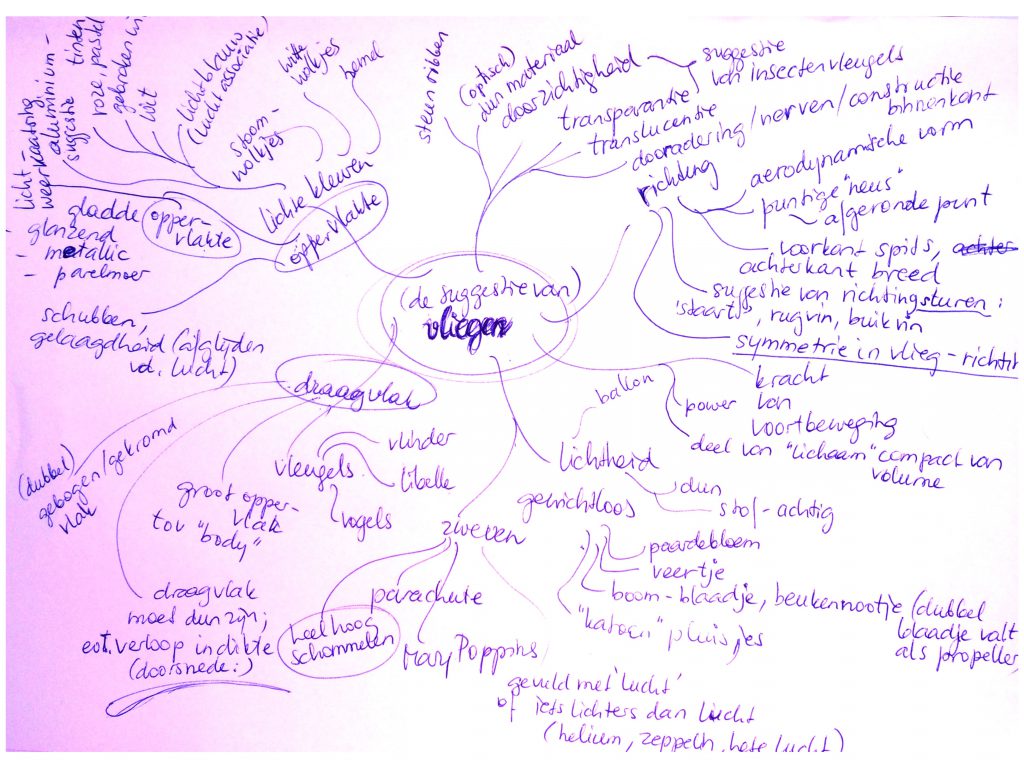 (de suggestie van)
vliegen
lichte kleuren
oppervlakte
hemel
witte
wolkjes
stoom-
wolkjes
lichtblauw
(lucht associatie)
tinten
roze, pastel
gebroken wi
wit
licht-
weerkaatsing
aluminium-
suggestie
opper-
vlakte
gladde
- glanzend
- metallic
- parelmoer
schubben,
gelaagdheid (afglijden
vd. lucht)
steun ribben
(optisch)
dun materiaal
doorzichtigheid
suggestie
van insectenvleugels
transparantie
translucentie
dooradering/nerven/constructie
binnenkant
richting
aerodynamische vorm
puntige "neus"
~ afgeronde punt
voorkant spits, achter
achterkant breed
suggestie van richting sturen:
'staart', rugvin, buikvin
symmetrie in vlieg-richti
kracht
van
voortbeweging
power
deel van "lichaam" compact van
volume
lichtheid
ballon
dun
stof-achtig
gewichtloos
paardebloem
veertje
boom-blaadje, beukennootje (dubbel
blaadje valt
als propeller)
"katoen" pluisjes
zweven
parachute
heel hoog
schommelen
Mary Poppins
gevuld met 'lucht'
of iets lichters dan lucht
(helium, zeppelin, hete lucht)
draagvlak
vleugels
vlinder
libelle
vogels
groot opper-
vlak
tov "body"
(dubbel)
gebogen/gekromd
vlak
draagvlak
moet dun zijn;
evt. verloop in dikte
(doorsnede:)